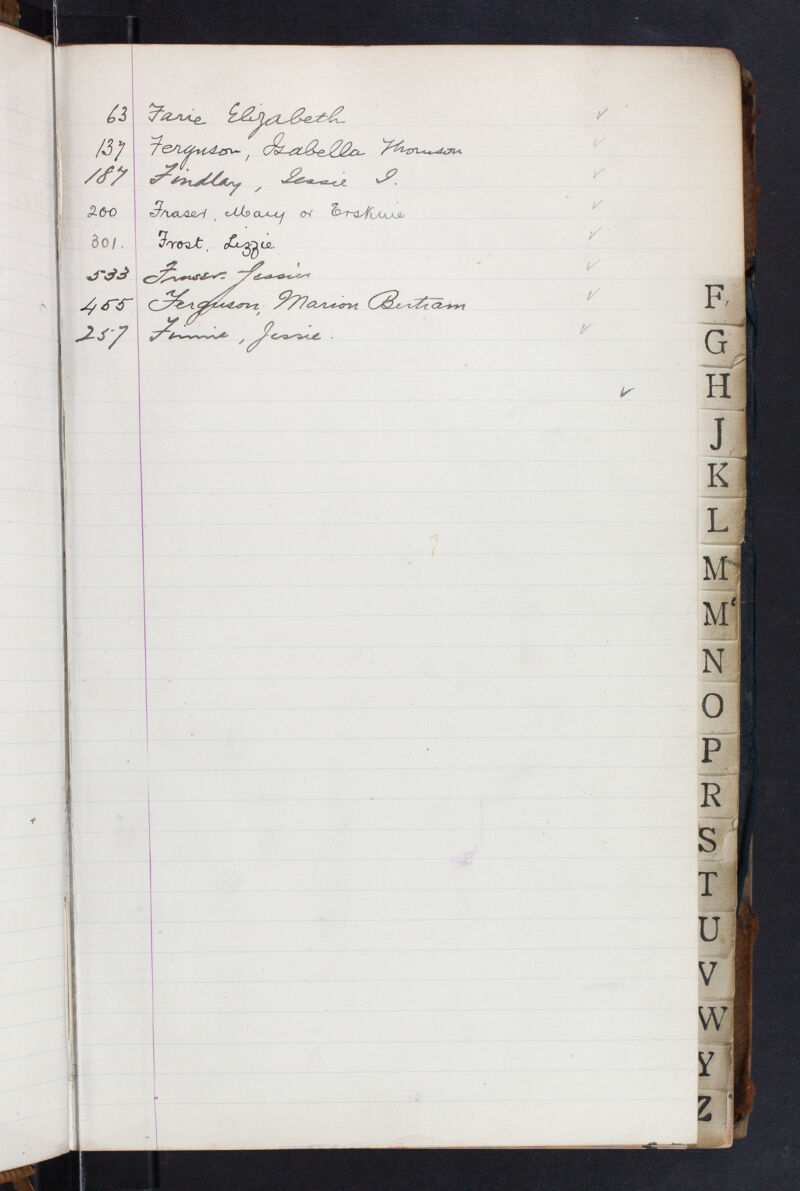 63 Farie Elizabeth ✓
137 Ferguson, Isabella Thomson ✓
187 Findlay, Jessie I. ✓
200 Fraser, Mary or Erskine ✓
301. Frost, Lizzie ✓
533 Fraser. Jessie ✓
455 Ferguson, Marion Bertram ✓
257 Finnie, Jessie. ✓
✓
F
G
H
J
K
L
M
Mᶜ
N
O
P
R
S
T
U
V
W
Y
Z